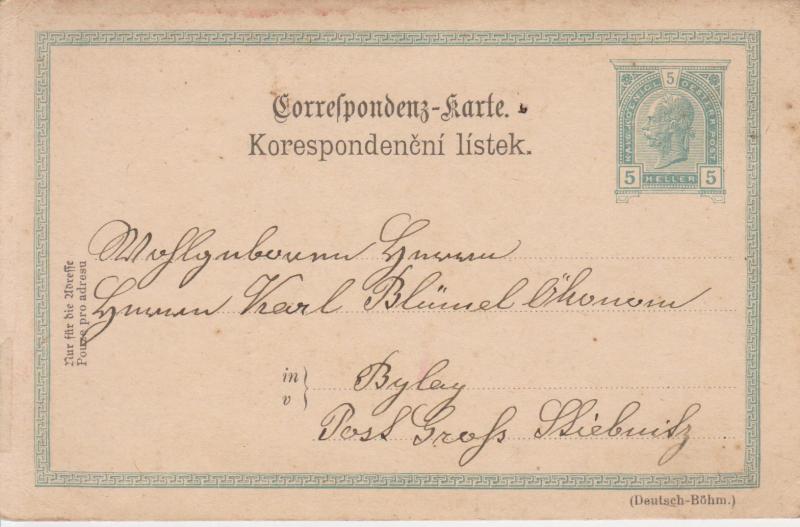 Correſpondenz-Karte.
Korespondenční lístek.
5
KAIS. KOENIGL. OESTERR. POST
5 HELLER 5
Nur für die Adreſſe
Pouze pro adresu
Wohlgeborenen Herren
Herren Karl Blümel Ökonom
in
v
Bylay
Post Gross Stiebnitz
(Deutsch-Böhm.)